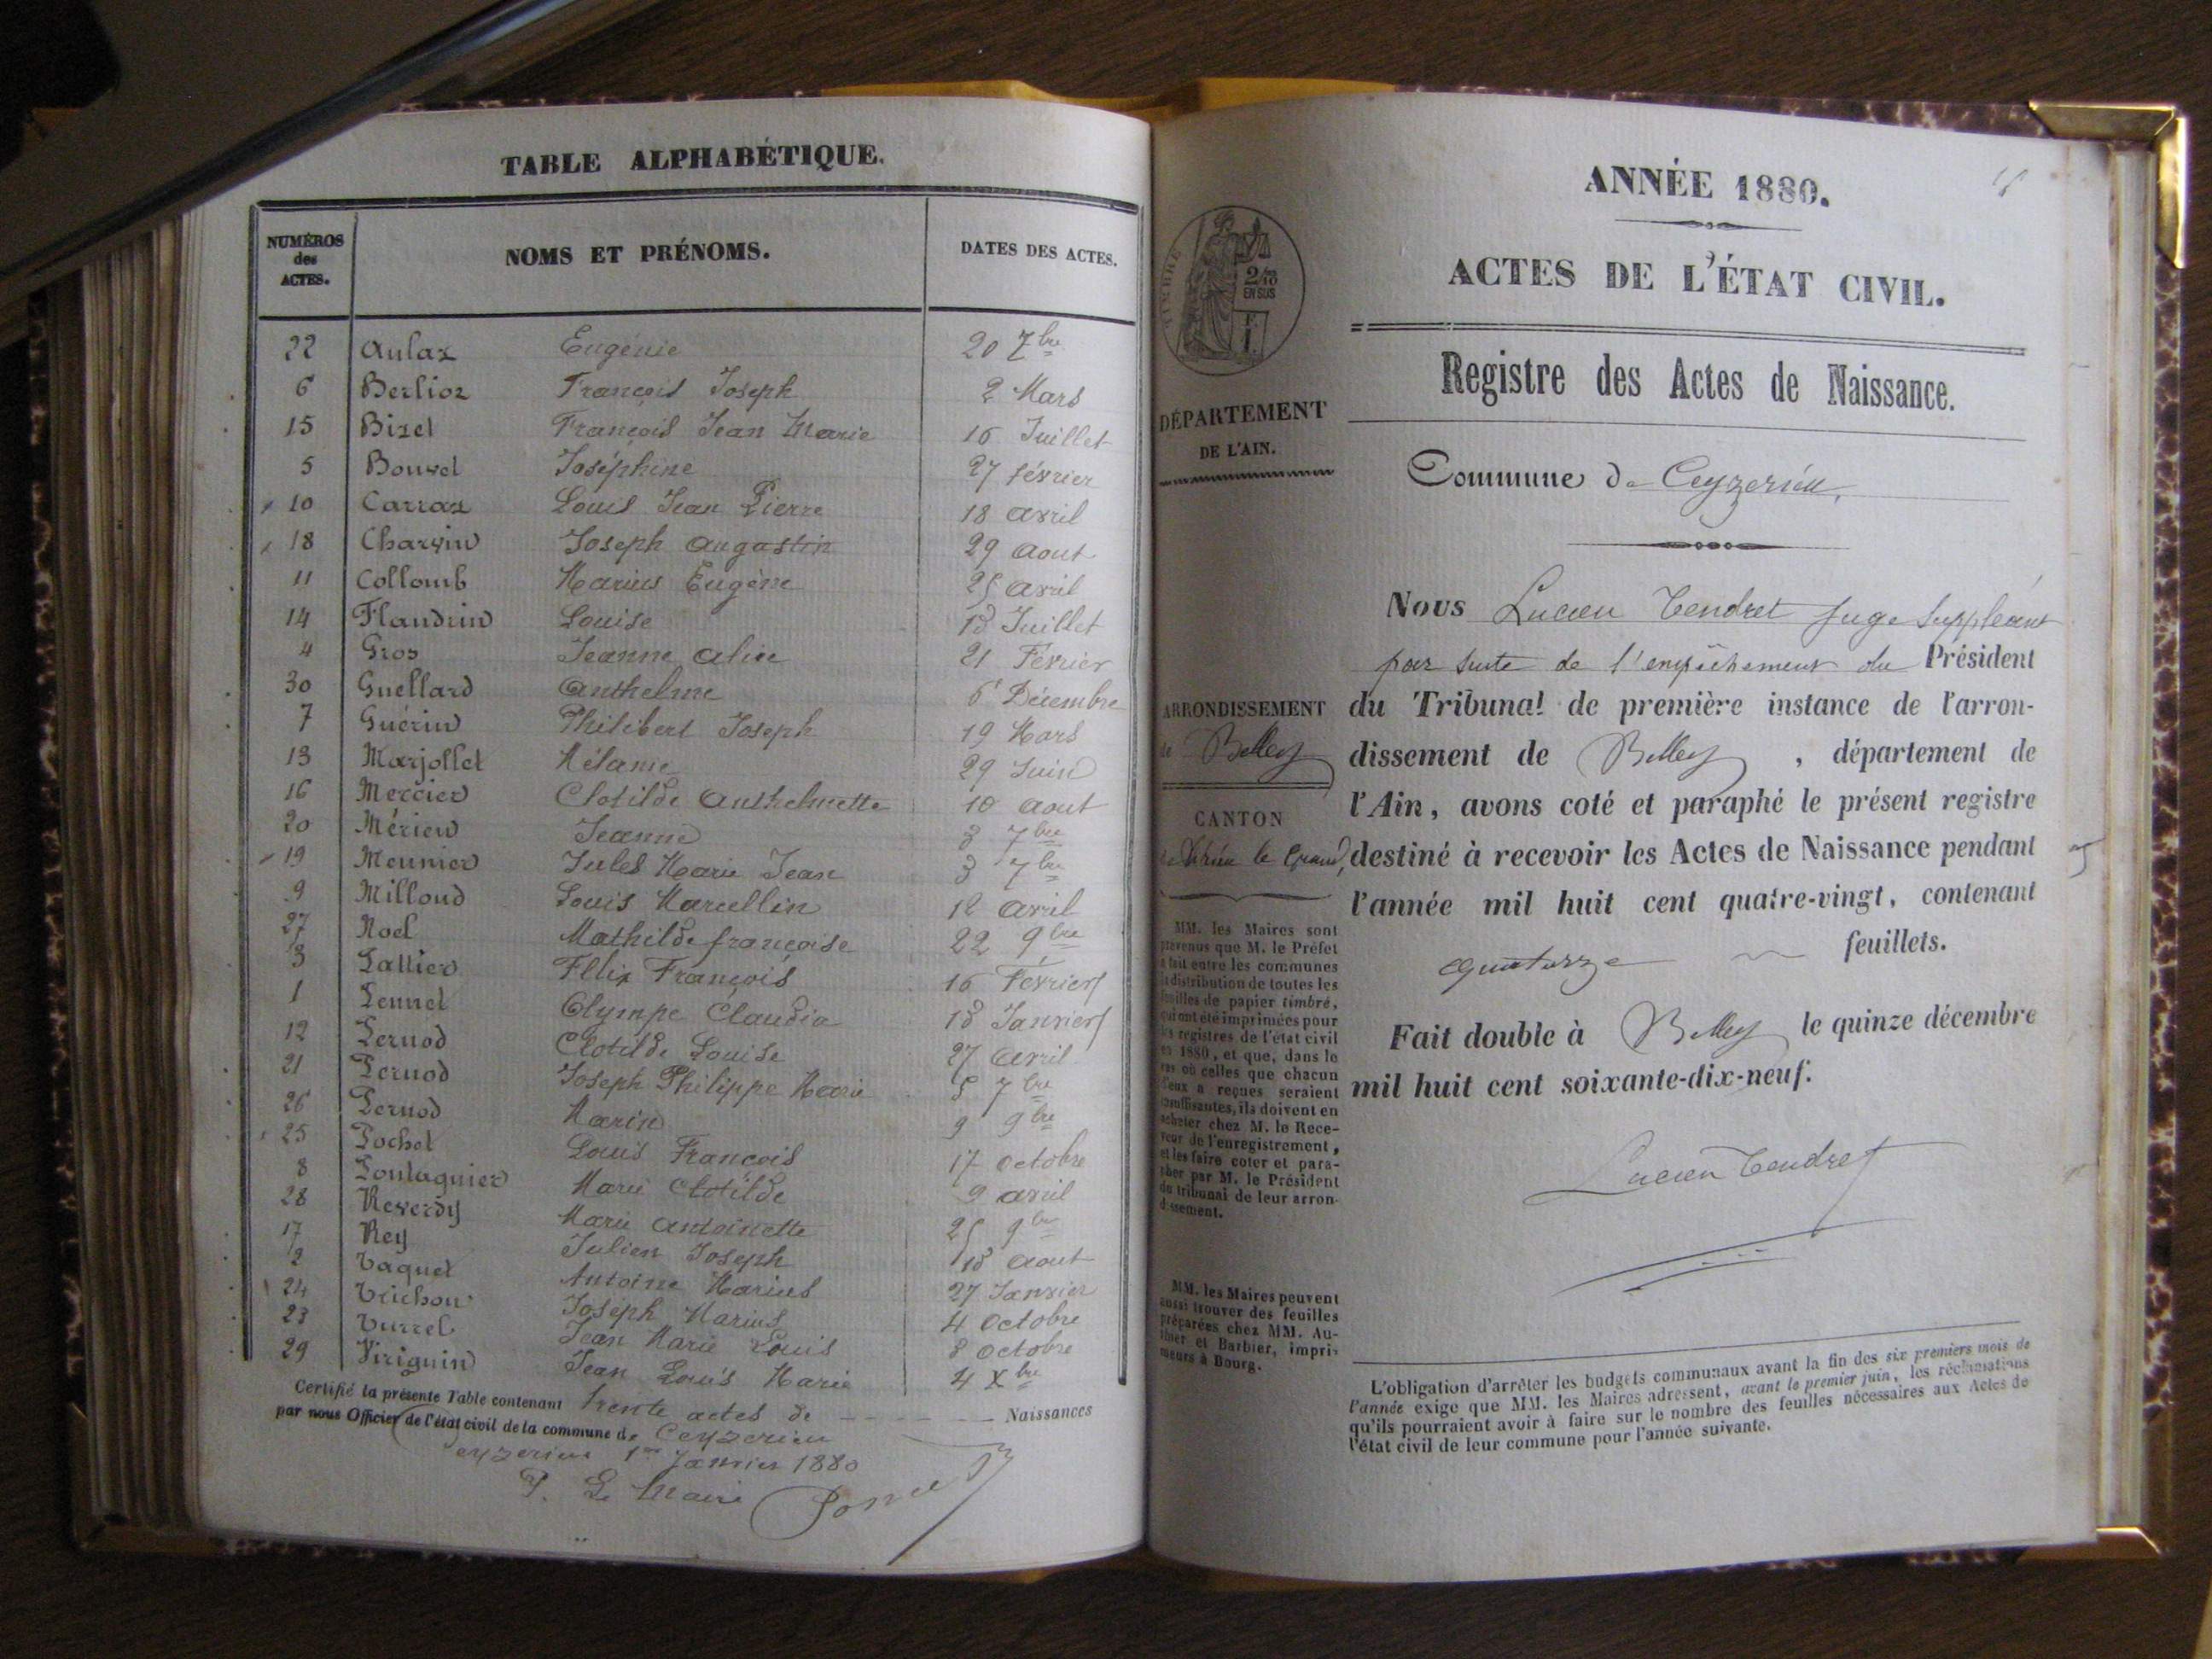 TABLE ALPHABÉTIQUE.
NUMÉROS des ACTES. NOMS ET PRÉNOMS. DATES DES ACTES.
22 Aulaz Eugénie 20 7bre
6 Berlioz François Joseph 2 Mars
15 Bizet François Jean Marie 16 Juillet
5 Bouvet Joséphine 27 février
10 Carraz Louis Jean Pierre 18 avril
18 Charvin Joseph Augustin 29 Aout
11 Collomb Marius Eugène 25 avril
14 Flandrin Louise 13 Juillet
4 Gros Jeanne Aline 21 Février
30 Guellard Anthelme 6 Décembre
7 Guérin Philibert Joseph 19 Mars
13 Marjollet Mélanie 29 Juin
16 Mercier Clotilde Anthelmette 10 aout
20 Mérieu Jeanne 3 7bre
19 Meunier Jules Marie Jean 3 7bre
9 Milloud Louis Marcellin 12 avril
27 Noel Mathilde françoise 22 9bre
3 Pallier Félix François 16 Février
1 Pennet Olympe Claudia 13 Janvier
12 Pernod Clotilde Louise 27 Avril
21 Pernod Joseph Philippe Marie 5 7bre
26 Pernod Marin 9 9bre
25 Pochet Louis François 17 octobre
8 Pontagnier Marie Clotilde 9 avril
28 Reverdy Marie Antoinette 25 9bre
17 Rey Julien Joseph 13 Aout
2 Vaquet Antoine Marius 27 Janvier
24 Trichon Joseph Marius 4 octobre
23 Turrel Jean Marie Louis 8 octobre
29 Viriguin Jean Louis Marie 4 Xbre
Certifié la présente Table contenant trente actes de Naissances
par nous Officier de l'état civil de la commune de Ceyzerieu
Ceyzerieu 1er Janvier 1880
P. Le Maire
ANNÉE 1880.
ACTES DE L'ÉTAT CIVIL.
Registre des Actes de Naissance.
TIMBRE
2/10
EN SUS
DÉPARTEMENT
DE L'AIN.
Commune de Ceyzerieu,
Nous Lucien Tendret Juge Suppléant
par suite de l'empêchement du Président
du Tribunal de première instance de l'arron-
dissement de Belley, département de
l'Ain, avons coté et paraphé le présent registre
destiné à recevoir les Actes de Naissance pendant
l'année mil huit cent quatre-vingt, contenant
quatorze feuillets.
Fait double à Belley le quinze décembre
mil huit cent soixante-dix-neuf.
Lucien Tendret
ARRONDISSEMENT
de Belley
CANTON
de Virieu le Grand,
MM. les Maires sont
prévenus que M. le Préfet
a fait entre les communes
la distribution de toutes les
feuilles de papier timbré,
qui ont été imprimées pour
les registres de l'état civil
en 1880, et que, dans le
cas où celles que chacun
d'eux a reçues seraient
insuffisantes, ils doivent en
acheter chez M. le Rece-
veur de l'enregistrement,
et les faire coter et para-
pher par M. le Président
du tribunal de leur arron-
dissement.
MM. les Maires peuvent
aussi trouver des feuilles
préparées chez MM. Au-
thier et Barbier, impri-
meurs à Bourg.
L'obligation d'arrêter les budgets communaux avant la fin des six premiers mois de
l'année exige que MM. les Maires adressent, avant le premier juin, les réclamations
qu'ils pourraient avoir à faire sur le nombre des feuilles nécessaires aux Actes de
l'état civil de leur commune pour l'année suivante.